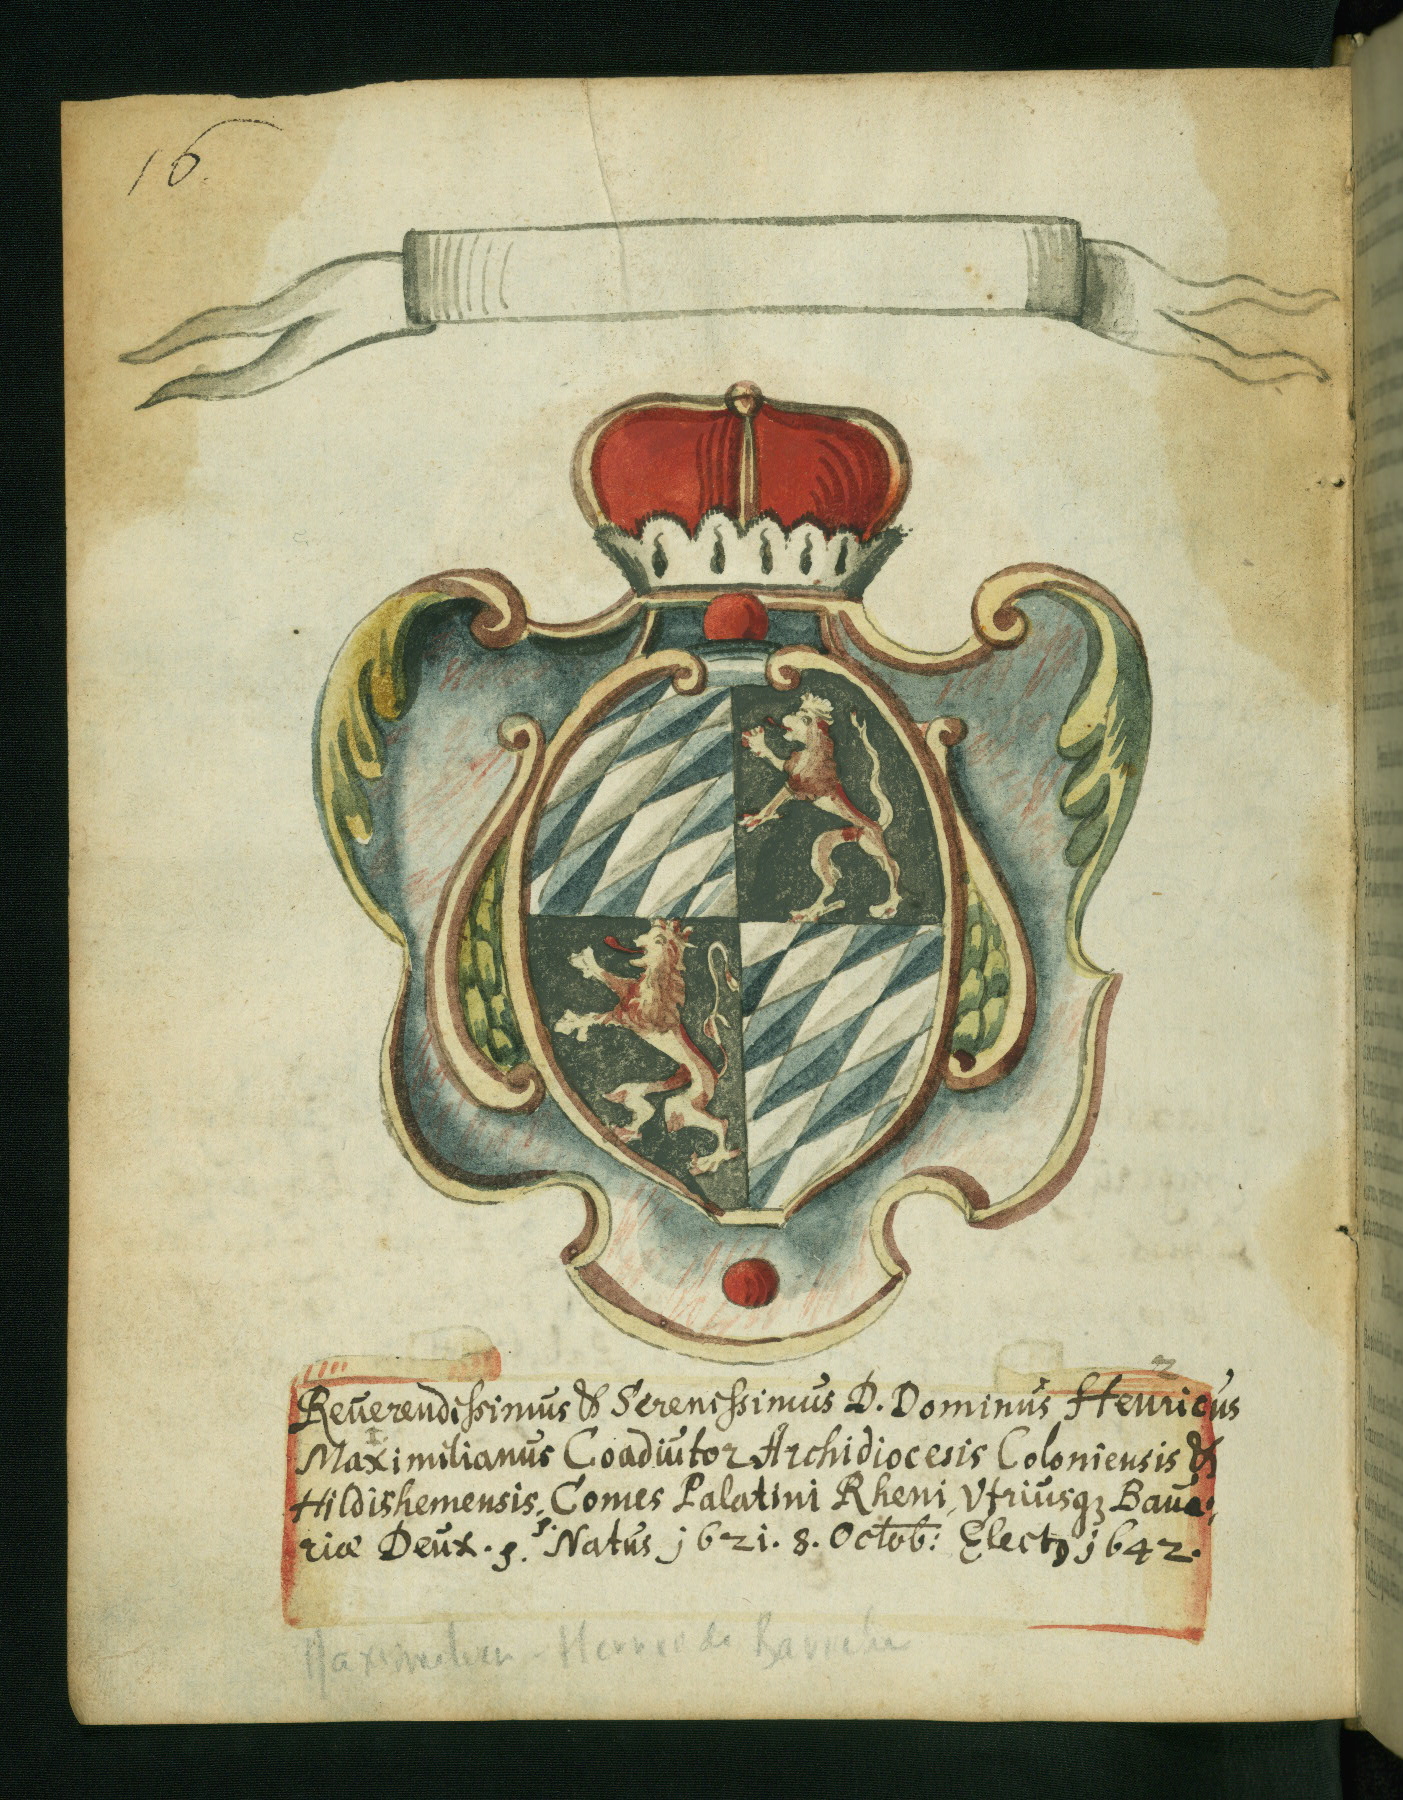 16.
2
Reuerendissimus & Serenissimus D. Dominus Henricus
1
Maximilianus Coadiutor Archidiocesis Coloniensis &
Hildishemensis, Comes Palatini Rheni, Vtriusqꝫ Baua:
riæ Deux. Natus j6zi. 8. Octob: Electꝰ j64z.
Maximilien-Henri de Baviere